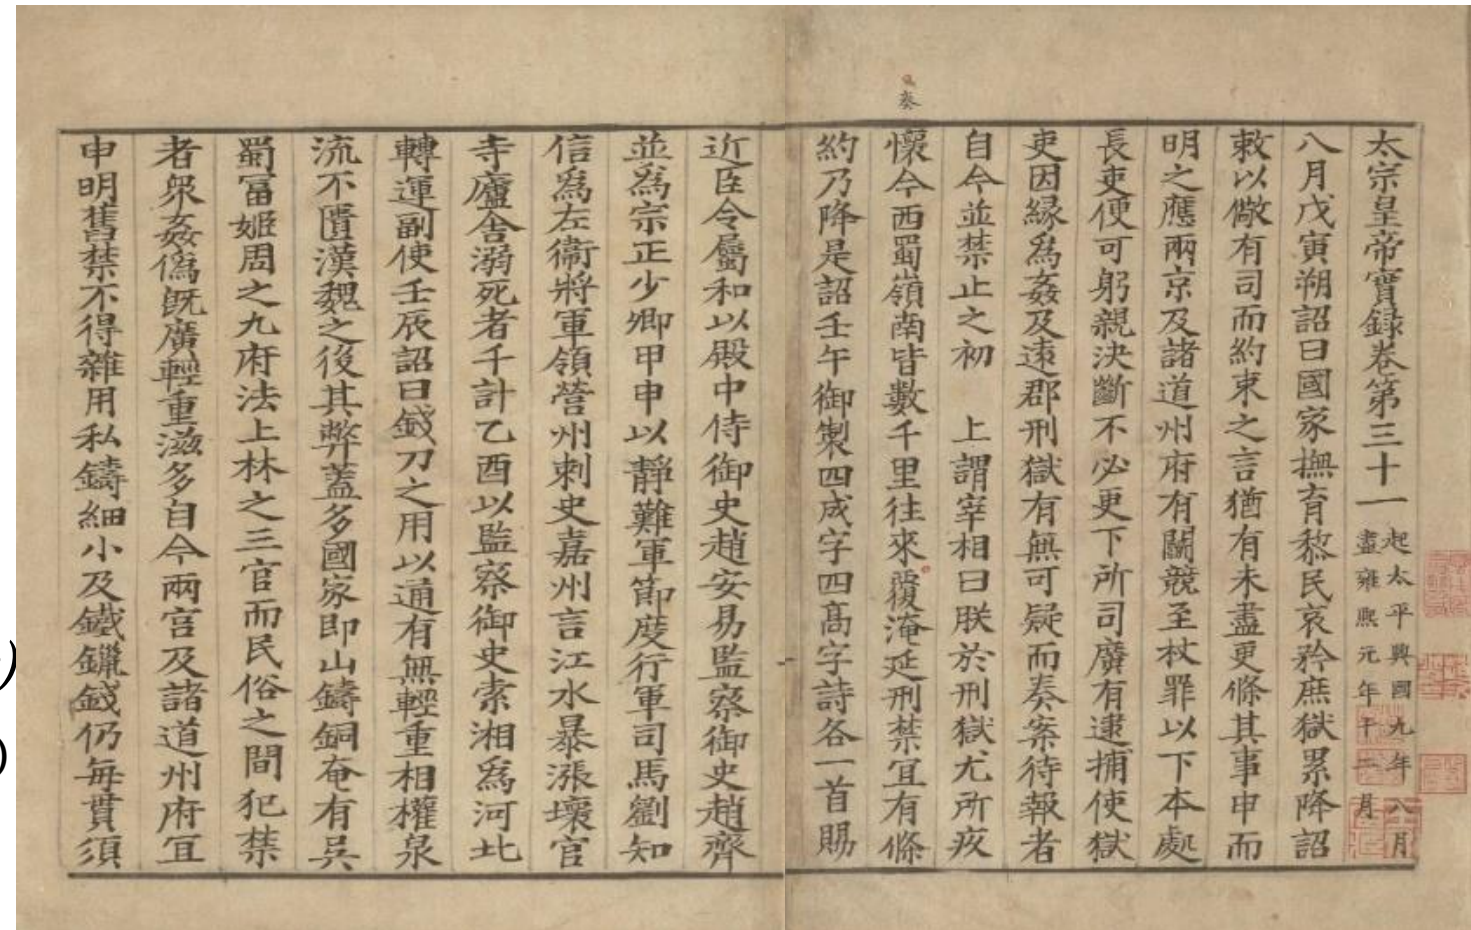 太宗皇帝實録卷第三十一
起太平興國九年八月
盡雍熈元年十二月
八月戊寅朔詔曰國家撫育黎民哀矜庶獄累降詔
敕以儆有司而約束之言猶有未盡更條其事申而
明之應兩京及諸道州府有鬭競至杖罪以下本處
長吏便可躬親決斷不必更下所司廣有逮捕使獄
吏因緣爲姦及遠郡刑獄有無可疑而奏案待報者
自今並禁止之初　上謂宰相曰朕於刑獄尤所疚
奏
懷今西蜀嶺南皆數千里往來覆淹延刑禁宜有條
約乃降是詔壬午御製四成字四高字詩各一首賜
近臣令屬和以殿中侍御史趙安易監察御史趙齊
並爲宗正少卿甲申以靜難軍節度行軍司馬劉知
信爲左衞將軍領營州刺史嘉州言江水暴漲壞官
寺廬舍溺死者千計乙酉以監察御史索湘爲河北
轉運副使壬辰詔曰錢刀之用以通有無輕重相權泉
流不匱漢魏之後其弊蓋多國家即山鑄銅奄有吳
蜀冨姬周之九府法上林之三官而民俗之間犯禁
者衆姦僞旣廣輕重滋多自今兩宫及諸道州府宜
申明舊禁不得雜用私鑄細小及鐵鑞錢仍每貫須